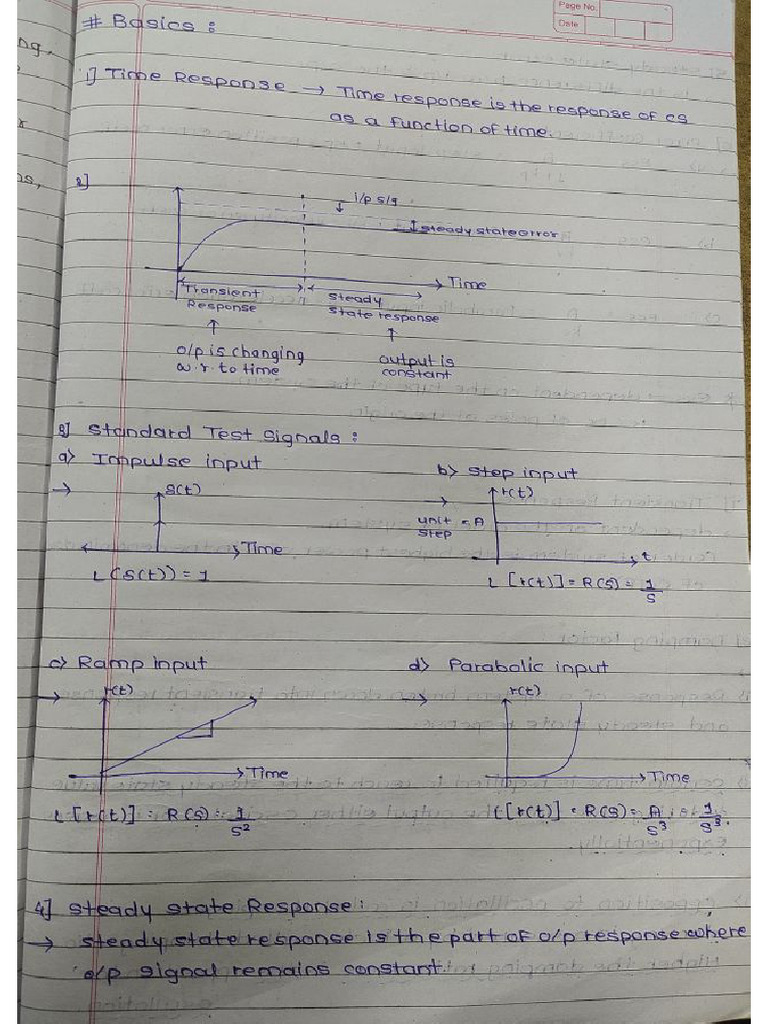 Page No.
Date
# Basics :
1] Time Response → Time response is the response of cs
as a function of time.
2]
i/p sig
steady state error
Time
Transient
Response
steady
state response
o/p is changing
w.r. to time
output is
constant
3] Standard Test Signals :
a) Impulse input
b) Step input
→ δ(t)
Time
L(δ(t)) = 1
→ r(t)
unit = A
step
t
L [r(t)] = R(s) = 1/s
c) Ramp input
d) Parabolic input
→ r(t)
Time
L [r(t)] = R(s) = 1/s²
→ r(t)
Time
L[r(t)] = R(s) = A/s³ = 1/s³.
4] Steady State Response :
→ Steady state response is the part of o/p response where
o/p signal remains constant.